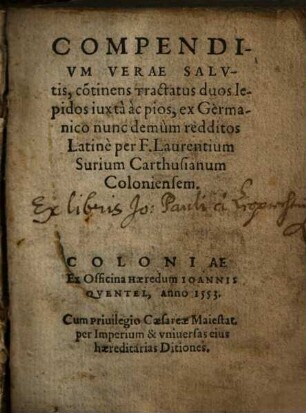 COMPENDI-
VM VERAE SALV-
tis, cõtinens Tractatus duos le-
pidos iuxtà ac pios, ex Germa-
nico nunc demùm redditos
Latinè per F. Laurentium
Surium Carthusianum
Coloniensem.
Ex libris Jo: Pauli à
COLONIAE
Ex Officina Hæredum IOANNIS
QVENTEL, anno 1553.
Cum Priuilegio Cæsareæ Maiestat.
per Imperium & vniuersas eius
hæreditarias Ditiones.